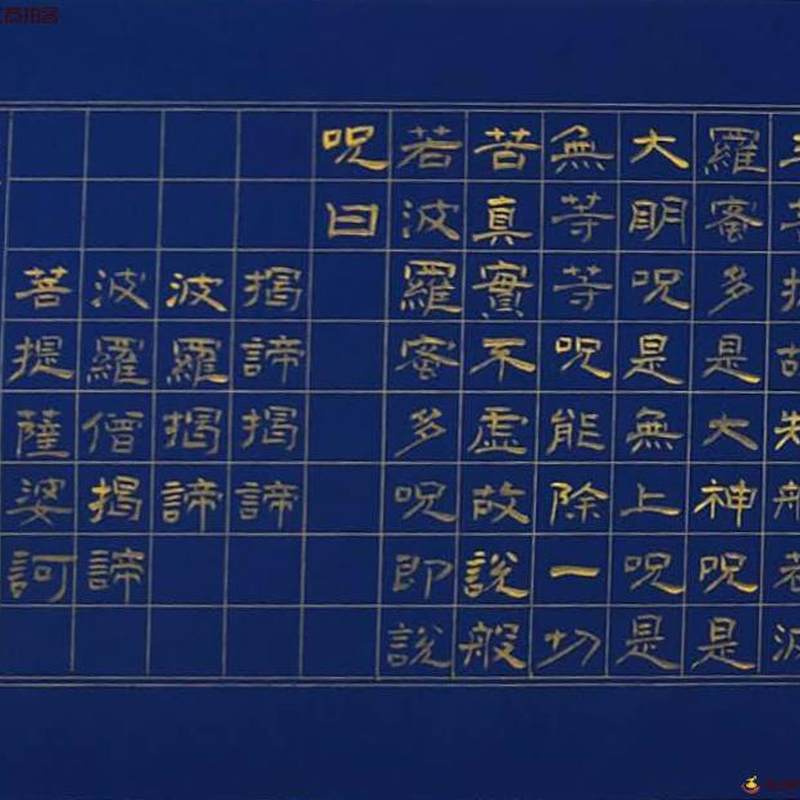 三菩提故知般若波
羅蜜多是大神呪是
大明呪是無上呪是
無等等呪能除一切
苦真實不虛故說般
若波羅蜜多呪即說
呪曰
揭諦揭諦
波羅揭諦
波羅僧揭諦
菩提薩婆訶